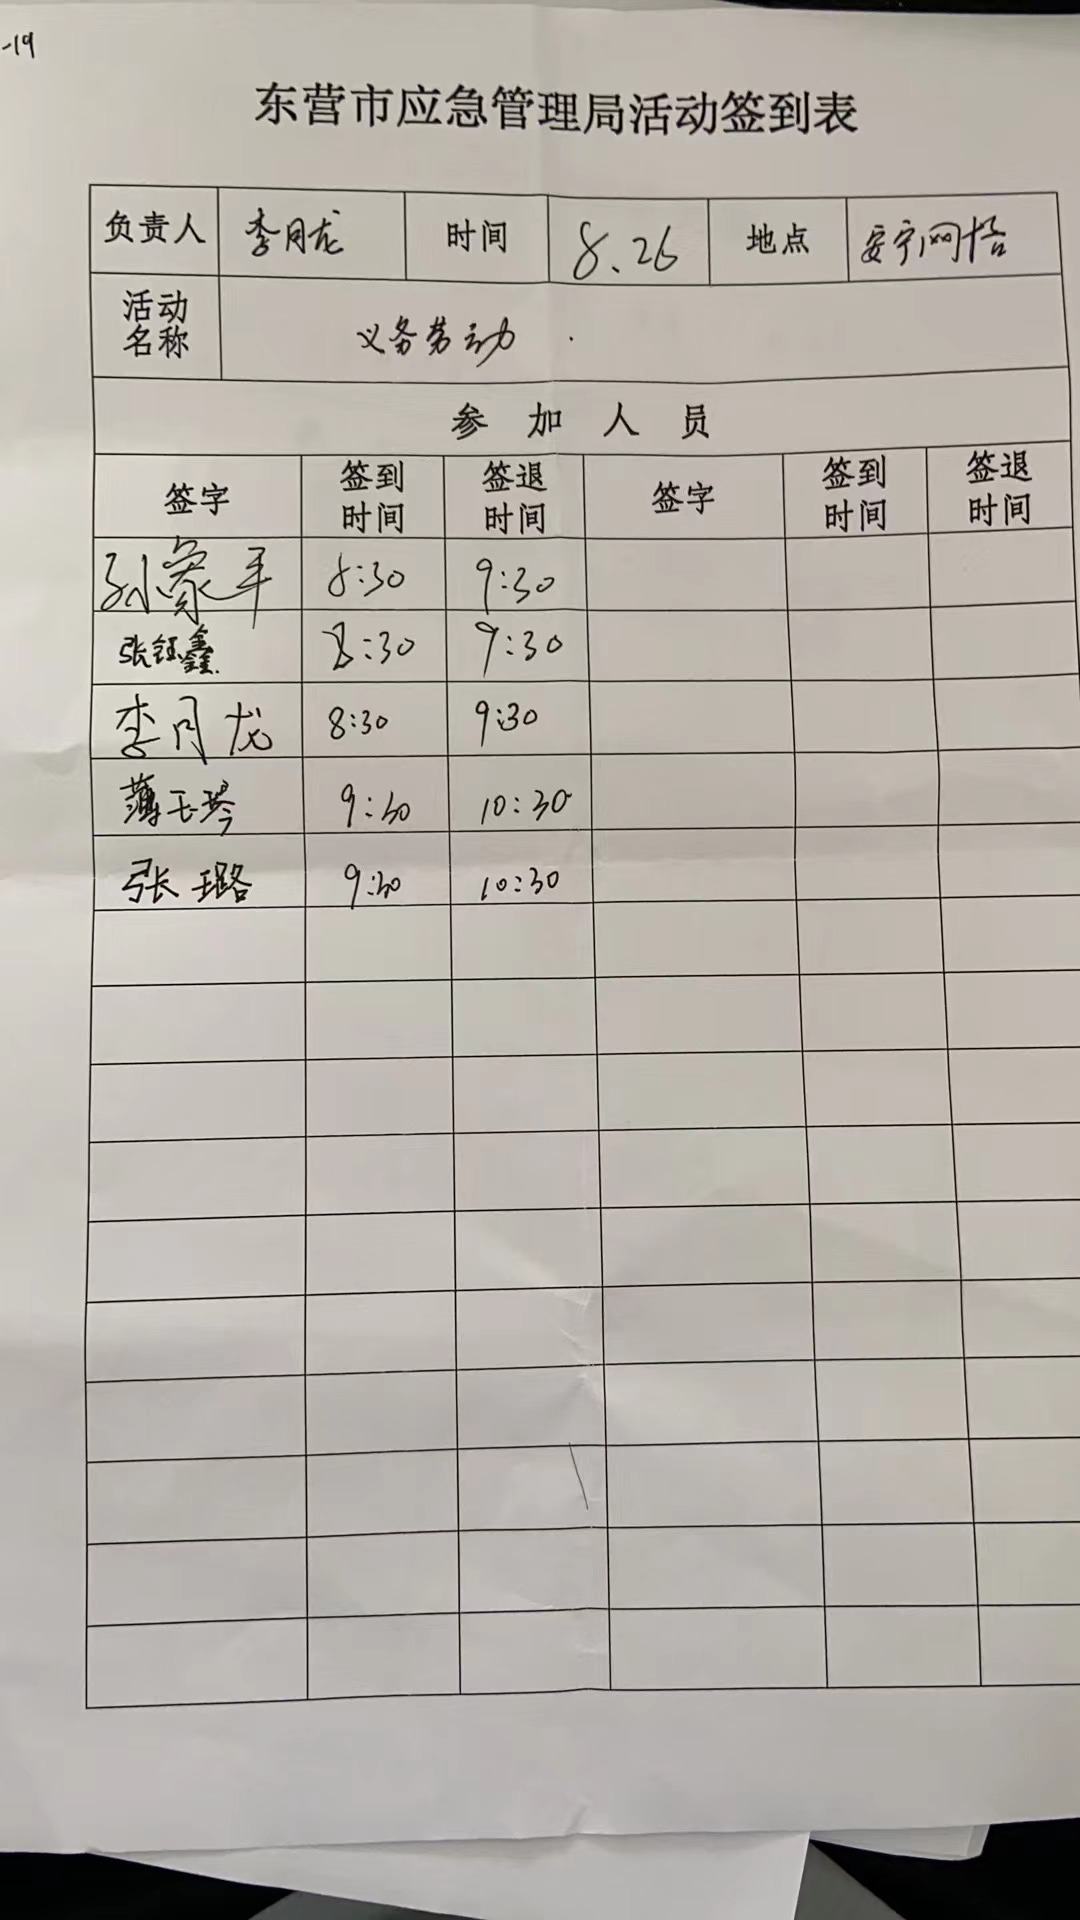 -19
东营市应急管理局活动签到表
负责人 李月龙 时间 8.26 地点
活动名称 义务劳动
参加人员
签字 签到时间 签退时间 签字 签到时间 签退时间
8:30 9:30
张钰鑫 8:30 9:30
李月龙 8:30 9:30
薄玉琴 9:30 10:30
张璐 9:30 10:30